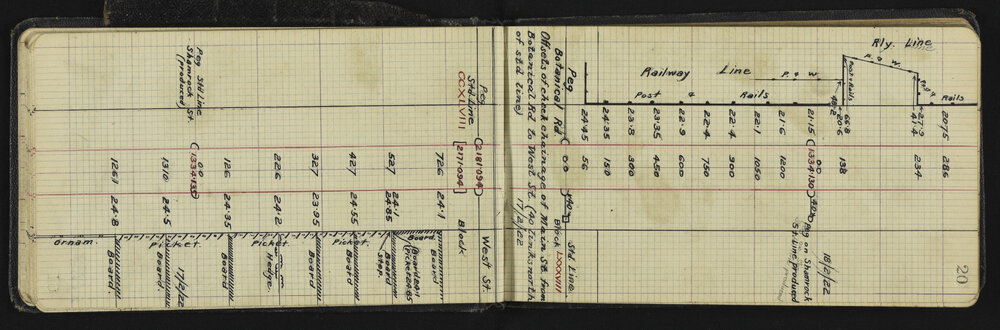 20
Rly. Line
P. & W.
Rails
2075 286
27.9
47.4 234
Post & Rails
66.8
20.6 138
48.2
18/2/22
Peg on Shamrock
St. Line produced
21.15 00 (1334.130) 40
21.6 1200
22.1 1050
22.4 900
22.4 750
22.9 600
23.35 450
23.8 300
24.35 150
24.45 56
Railway Line P. & W.
Post & Rails
Peg 00 40 Std Line.
Botanical Rd Block LXXXVIII
Offsets & check chainage of Main St. from
Botanical Rd to West St. (40 links north
of std line) 17/2/22
Peg (2181.094) West St.
Std. Line
CCXLVIII [2171.094] Block
726 24.1 Board
Board
(Board 24.1
Picket 24.85
527 24.1
24.85 Board
Step.
427 24.55 Picket.
Board
327 23.95 Board
226 24.2 Picket
Hedge.
126 24.35 Board
Peg Std Line
Shamrock St.
(produced)
00
(1334.135)
1310 24.5 Picket.
17/2/22
Board
1261 24.8 Board.
Ornam.